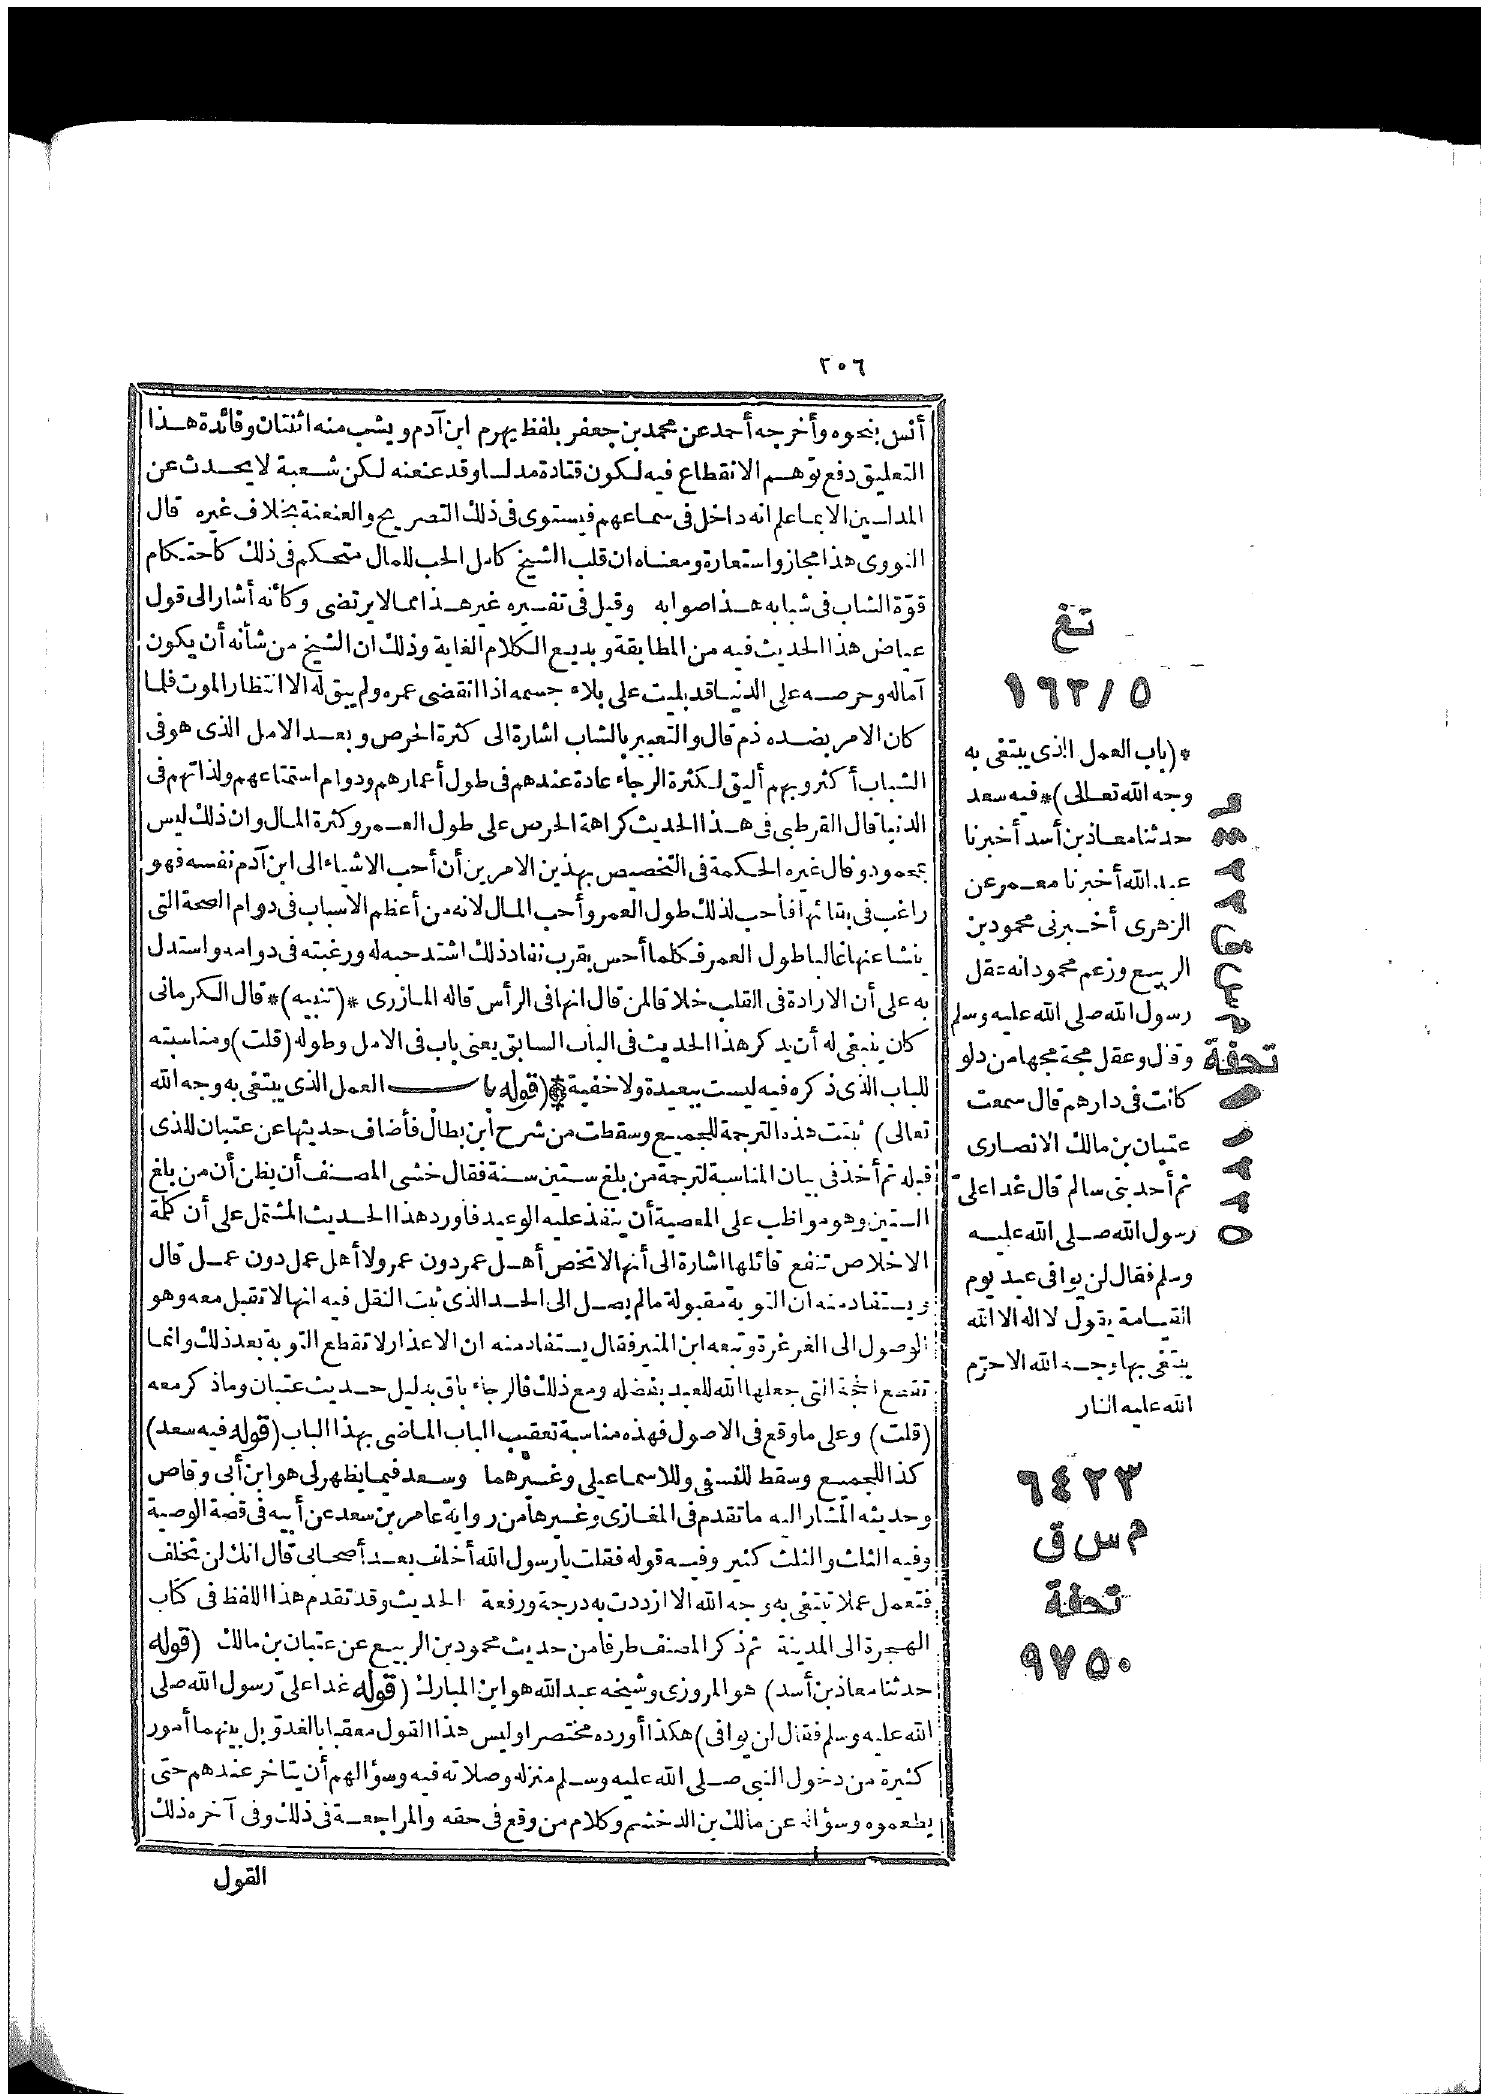 ٢٠٦
أنس بنحوه وأخرجه أحمد عن محمد بن جعفر بلفظ يهرم ابن آدم ويشب منه اثنتان وفائدة هذا
التعليق دفع توهم الانقطاع فيه لكون قتادة مدلسا وقد عنعنه لكن شعبة لا يحدث عن
المدلسين الا بما علم انه داخل فى سماعهم فيستوى فى ذلك التصريح والعنعنة بخلاف غيره قال
النووى هذا مجاز واستعارة ومعناه ان قلب الشيخ كامل الحب للمال متحكم فى ذلك كاحتكام
قوّة الشاب فى شبابه هذا صوابه وقيل فى تفسيره غير هذا مما لا يرتضى وكأنه أشار الى قول
عياض هذا الحديث فيه من المطابقة وبديع الكلام الغاية وذلك ان الشيخ من شأنه أن يكون
آماله وحرصه على الدنيا قد بليت على بلاء جسمه اذا انقضى عمره ولم يبق له الا انتظار الموت فلما
كان الامر بضده ذم قال والتعبير بالشاب اشارة الى كثرة الحرص وبعد الامل الذى هو فى
الشباب أكثر وبهم أليق لكثرة الرجاء عادة عندهم فى طول أعمارهم ودوام استمتاعهم ولذاتهم فى
الدنيا قال القرطبى فى هذا الحديث كراهة الحرص على طول العمر وكثرة المال وان ذلك ليس
بمحمود وقال غيره الحكمة فى التخصيص بهذين الامرين أن أحب الاشياء الى ابن آدم نفسه فهو
راغب فى بقائها فأحب لذلك طول العمر وأحب المال لانه من أعظم الاسباب فى دوام الصحة التى
ينشأ عنها غالبا طول العمر فكلما أحس بقرب نفاد ذلك اشتد حبه له ورغبته فى دوامه واستدل
به على أن الارادة فى القلب خلافا لمن قال انها فى الرأس قاله المازرى *(تنبيه)* قال الكرمانى
كان ينبغى له أن يذكر هذا الحديث فى الباب السابق يعنى باب فى الامل وطوله (قلت) ومناسبته
للباب الذى ذكره فيه ليست ببعيدة ولا خفية *(قوله باب العمل الذى يبتغى به وجه الله
تعالى) ثبتت هذه الترجمة للجميع وسقطت من شرح ابن بطال فأضاف حديثها عن عتبان للذى
قبله ثم أخذ فى بيان المناسبة لترجمة من بلغ ستين سنة فقال خشى المصنف أن يظن أن من بلغ
الستين وهو مواظب على المعصية أن ينفذ عليه الوعيد فأورد هذا الحديث المشتمل على أن كلمة
الاخلاص تنفع قائلها اشارة الى أنها لا تخص أهل عمر دون عمر ولا أهل عمل دون عمل قال
ويستفاد منه ان التوبة مقبولة ما لم يصل الى الحد الذى ثبت النقل فيه انها لا تقبل معه وهو
الوصول الى الغرغرة وتبعه ابن المنير فقال يستفاد منه ان الاعذار لا تقطع التوبة بعد ذلك وانما
تقطع الحجة التى جعلها الله للعبد بفضله ومع ذلك فالرجاء باق بدليل حديث عتبان وما ذكر معه
(قلت) وعلى ما وقع فى الاصول فهذه مناسبة تعقيب الباب الماضى بهذا الباب (قوله فيه سعد)
كذا للجميع وسقط للنسفى وللاسماعيلى وغيرهما وسعد فيما يظهر لى هو ابن أبى وقاص
وحديثه المشار اليه ما تقدم فى المغازى وغيرها من رواية عامر بن سعد عن أبيه فى قصة الوصية
وفيه الثلث والثلث كثير وفيه قوله فقلت يا رسول الله أخلف بعد أصحابى قال انك لن تخلف
فتعمل عملا تبتغى به وجه الله الا ازددت به درجة ورفعة الحديث وقد تقدم هذا اللفظ فى كتاب
الهجرة الى المدينة ثم ذكر المصنف طرفا من حديث محمود بن الربيع عن عتبان بن مالك (قوله
حدثنا معاذ بن أسد) هو المروزى وشيخه عبد الله هو ابن المبارك (قوله غدا علىّ رسول الله صلى
الله عليه وسلم فقال لن يوافى) هكذا أورده مختصرا وليس هذا القول معقبا بالغدوّ بل بينهما أمور
كثيرة من دخول النبى صلى الله عليه وسلم منزله وصلاته فيه وسؤالهم أن يتأخر عندهم حتى
يطعموه وسؤاله عن مالك بن الدخشم وكلام من وقع فى حقه والمراجعة فى ذلك وفى آخره ذلك
القول
تغ
١٦٣/٥
*(باب العمل الذى يبتغى به
وجه الله تعالى)* فيه سعد
حدثنا معاذ بن أسد أخبرنا
عبد الله أخبرنا معمر عن
الزهرى أخبرنى محمود بن
الربيع وزعم محمود انه عقل
رسول الله صلى الله عليه وسلم
وقال وعقل مجة مجها من دلو
كانت فى دارهم قال سمعت
عتبان بن مالك الانصارى
ثم أحد بنى سالم قال غدا علىّ
رسول الله صلى الله عليه
وسلم فقال لن يوافى عبد يوم
القيامة يقول لا اله الا الله
يبتغى بها وجه الله الا حرّم
الله عليه النار
٦٤٢٢
م س ق
تحفة
١١٢٣٥
٦٤٢٣
م س ق
تحفة
٩٧٥٠